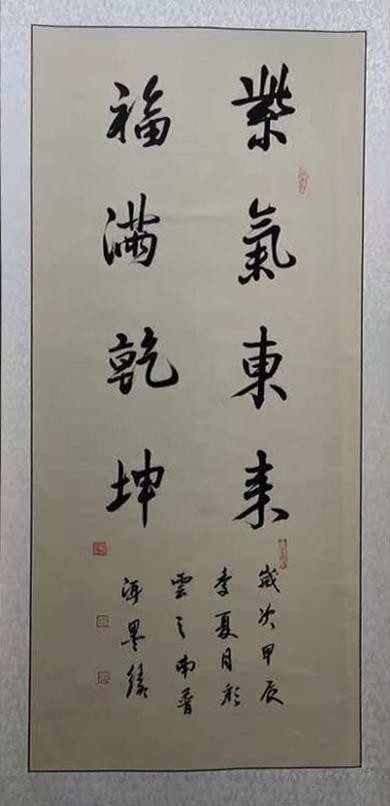 紫氣東来
福滿乾坤
歲次甲辰
季夏月彩
雲之南普
洱墨緣